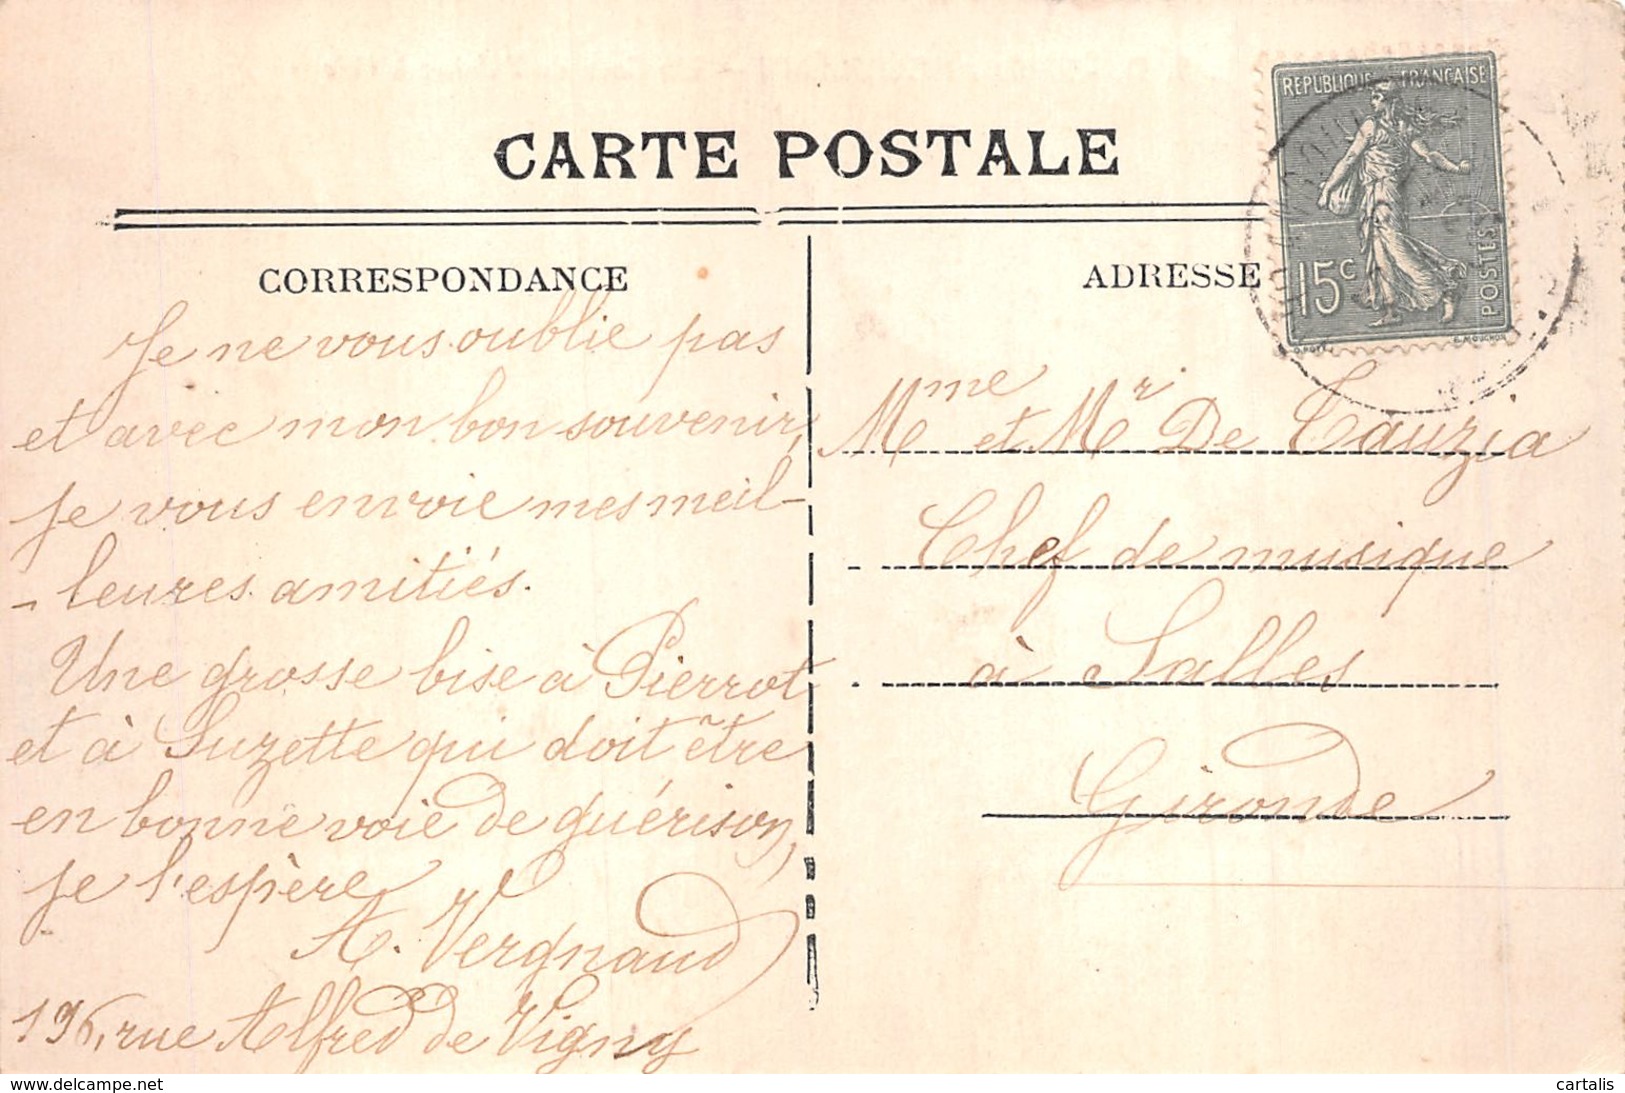 CARTE POSTALE
CORRESPONDANCE
Je ne vous oublie pas
et avec mon bon souvenir,
je vous envoie mes meil-
- leures amitiés.
Une grosse bise à Pierrot
et à Suzette qui doit être
en bonne voie de guérison,
je l'espère
A. Vergnaud
196, rue Alfred de Vigny
ADRESSE
REPUBLIQUE FRANÇAISE
15c
POSTES
O. ROTY.
E. MOUCHON
Mme et Mr De Cauzia
Chef de musique
à Salles
Gironde
www.delcampe.net
cartalis